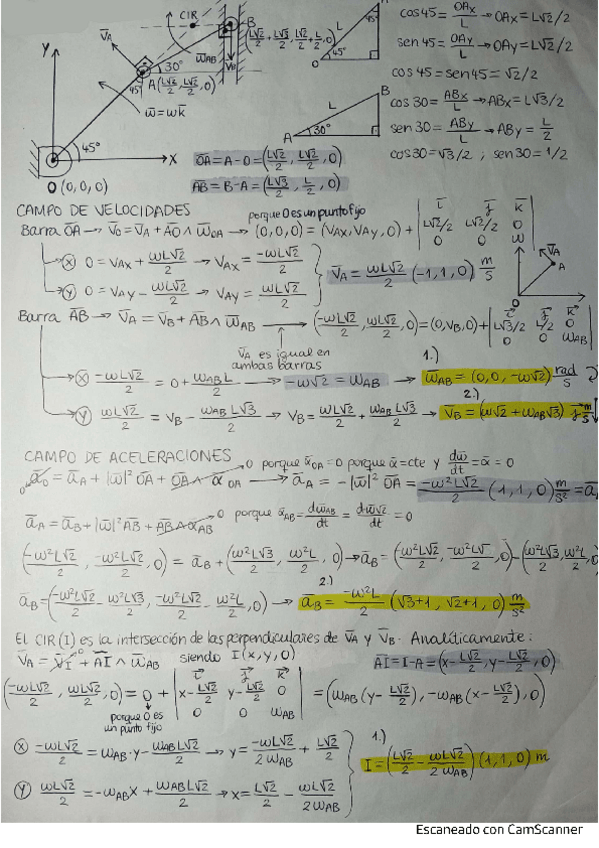 CIR
B
(L√2/2 + L√3/2, L√2/2 + L/2, 0)
V̄A
V̄B
ω̄AB
30°
45°
A(L√2/2, L√2/2, 0)
ω̄ = ωk̄
45°
Y
X
O (0,0,0)
L
45°
45°
O
A
cos45 = OAx/L → OAx = L√2/2
sen45 = OAy/L → OAy = L√2/2
cos45 = sen45 = √2/2
L
30°
A
B
cos30 = ABx/L → ABx = L√3/2
sen30 = ABy/L → ABy = L/2
cos30 = √3/2 ; sen30 = 1/2
OA = A-O = (L√2/2, L√2/2, 0)
AB = B-A = (L√3/2, L/2, 0)
CAMPO DE VELOCIDADES
porque O es un punto fijo
Barra OA → V̄O = V̄A + AO ∧ ω̄OA → (0,0,0) = (VAX, VAY, 0) + | ī j̄ k̄ ; L√2/2 L√2/2 0 ; 0 0 ω |
Ⓧ 0 = VAX + ωL√2/2 → VAX = -ωL√2/2
Ⓨ 0 = VAY - ωL√2/2 → VAY = ωL√2/2
V̄A = ωL√2/2 (-1,1,0) m/s
V̄A
A
O
Barra AB → V̄A = V̄B + AB ∧ ω̄AB → (-ωL√2/2, ωL√2/2, 0) = (0,VB,0) + | ī j̄ k̄ ; L√3/2 L/2 0 ; 0 0 ωAB |
V̄A es igual en
ambas barras
1.)
Ⓧ -ωL√2/2 = 0 + ωABL/2 → -ω√2 = ωAB → ω̄AB = (0,0,-ω√2) rad/s
2.)
Ⓨ ωL√2/2 = VB - ωABL√3/2 → VB = ωL√2/2 + ωABL√3/2 → V̄B = (ω√2 + ωAB√3) j̄ m/s
CAMPO DE ACELERACIONES
0 porque ᾱOA = 0 porque ω̄ = cte y dω̄/dt = ᾱ = 0
0 āO = āA + |ω̄|² OA + OA ∧ ᾱOA → āA = -|ω̄|² OA = -ω²L√2/2 (1,1,0) m/s² = ā
āA = āB + |ω̄|² AB + AB ∧ ᾱAB 0 porque ᾱAB = dω̄AB/dt = dω̄√2/dt = 0
(-ω²L√2/2, -ω²L√2/2, 0) = āB + (ω²L√3/2, ω²L/2, 0) → āB = (-ω²L√2/2, -ω²L√/2, 0) - (ω²L√3/2, ω²L/2, 0)
2.)
āB = (-ω²L√2/2 - ω²L√3/2, -ω²L√2/2 - ω²L/2, 0) → āB = -ω²L/2 (√3+1, √2+1, 0) m/s²
El CIR(I) es la intersección de las perpendiculares de V̄A y V̄B. Analíticamente:
V̄A = V̄I 0 + AI ∧ ω̄AB siendo I(x,y,0) AI = I-A = (x - L√2/2, y - L√2/2, 0)
(-ωL√2/2, ωL√2/2, 0) = 0 + | ī j̄ k̄ ; x - L√2/2 y - L√2/2 0 ; 0 0 ωAB | = (ωAB(y - L√2/2), -ωAB(x - L√2/2), 0)
porque O es
un punto fijo
Ⓧ -ωL√2/2 = ωAB·y - ωABL√2/2 → y = -ωL√2/2ωAB + L√2/2
1.)
I = (L√2/2 - ωL√2/2ωAB) (1,1,0) m
Ⓨ ωL√2/2 = -ωABX + ωABL√2/2 → x = L√2/2 - ωL√2/2ωAB
Escaneado con CamScanner